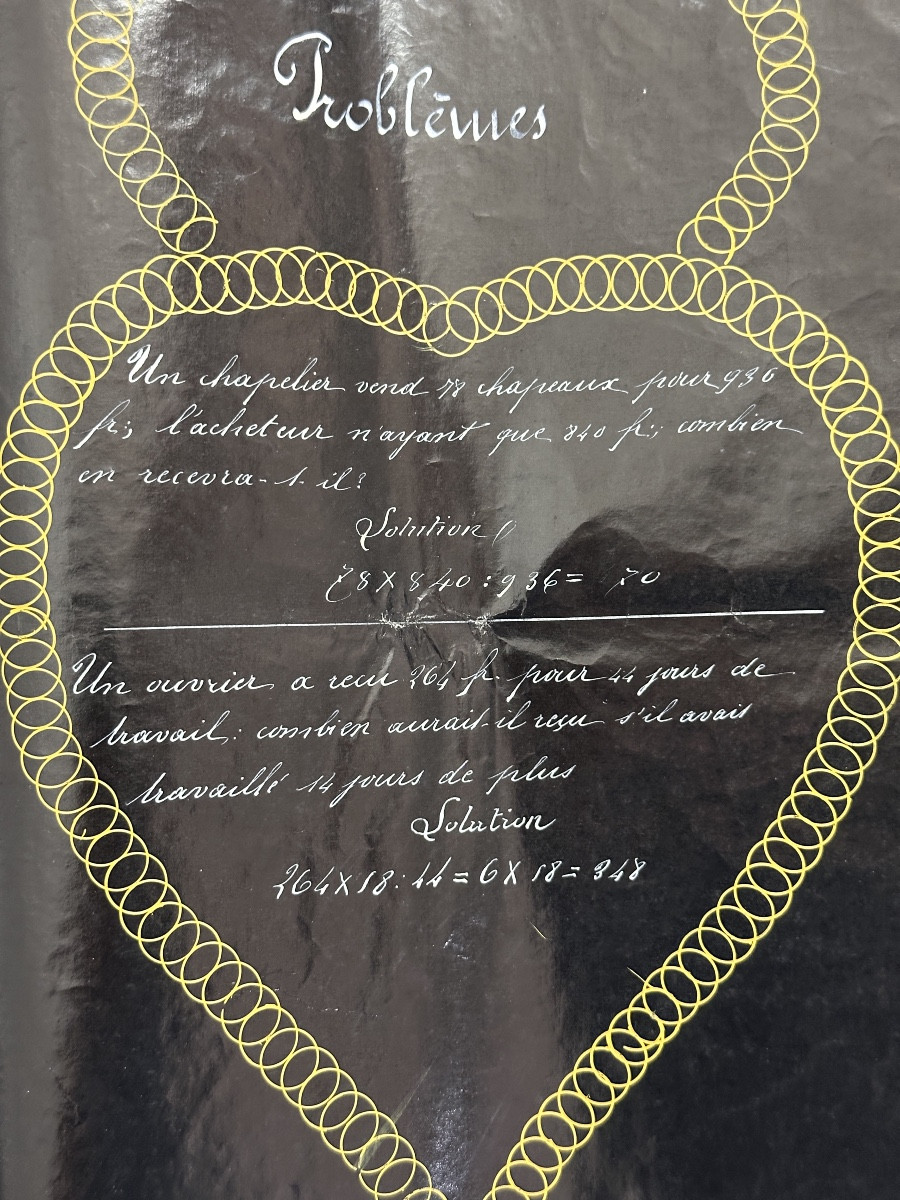 Problèmes
Un chapelier vend 78 chapeaux pour 936
fr; l'acheteur n'ayant que 840 fr; combien
en recevra-t-il?
Solution
78 X 840 : 936 = 70
Un ouvrier a recu 264 fr. pour 44 jours de
travail: combien aurait-il reçu s'il avait
travaillé 14 jours de plus
Solution
264 X 58 : 44 = 6 X 58 = 348